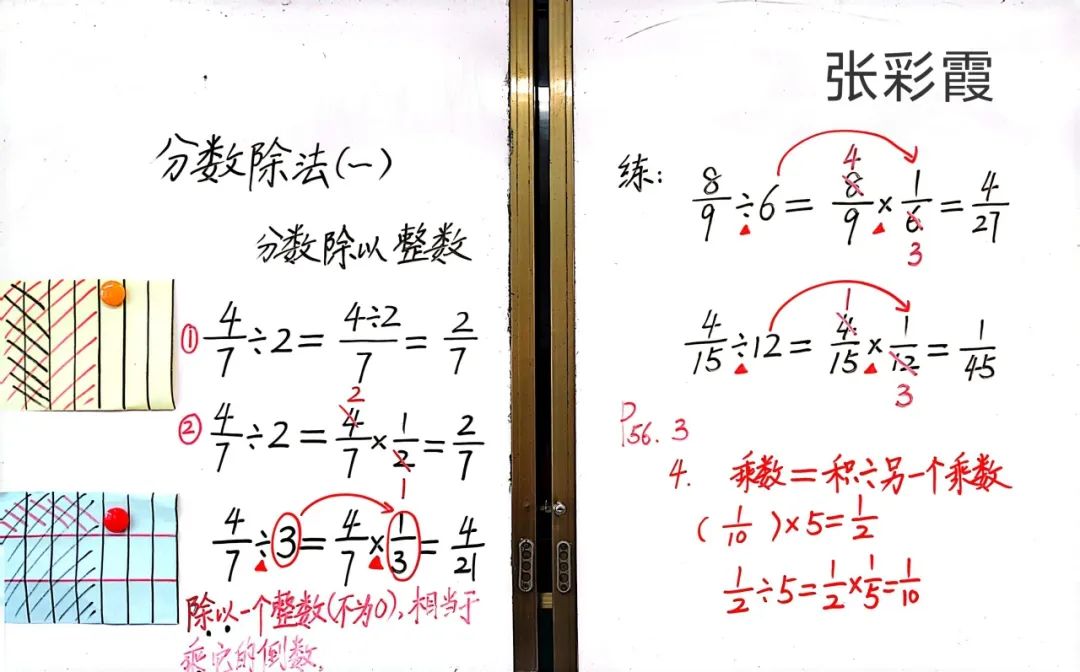 分数除法(一)
分数除以整数
① 4/7÷2=4÷2/7=2/7
② 4/7÷2=4/7×1/2=2/7
2
1
4/7÷3=4/7×1/3=4/21
除以一个整数(不为0),相当于
乘它的倒数。
张彩霞
练:8/9÷6=8/9×1/6=4/27
4
3
4/15÷12=4/15×1/12=1/45
1
3
P56. 3
4. 乘数=积÷另一个乘数
(1/10)×5=1/2
1/2÷5=1/2×1/5=1/10